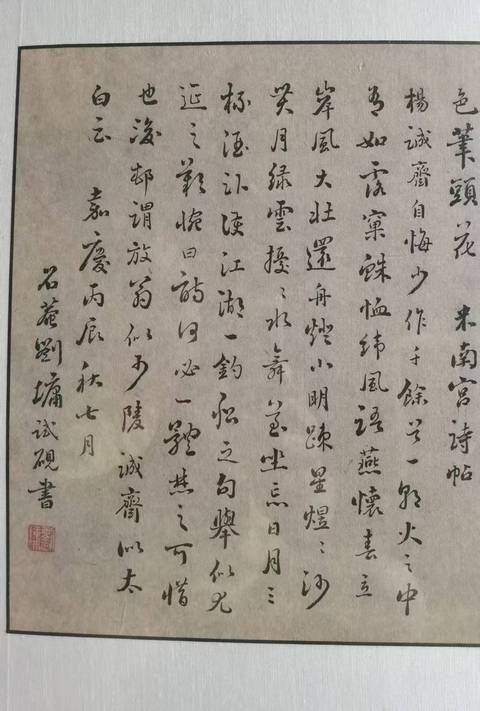 色筆頭花 米南宮詩帖
楊誠齋自悔少作千餘首一朝火之中
有如露窠蛛恤緯風語燕懷春立
岸風大壯還舟燈小明疎星煜〻沙
貫月綠雲擾〻水舞苔坐忘日月三
杯酒卧護江湖一釣船之句舉似尤
延之歎惋曰詩何必一體焚之可惜
也後邨謂放翁似少陵誠齋似太
白云 嘉慶丙辰秋七月
石菴劉墉試硯書